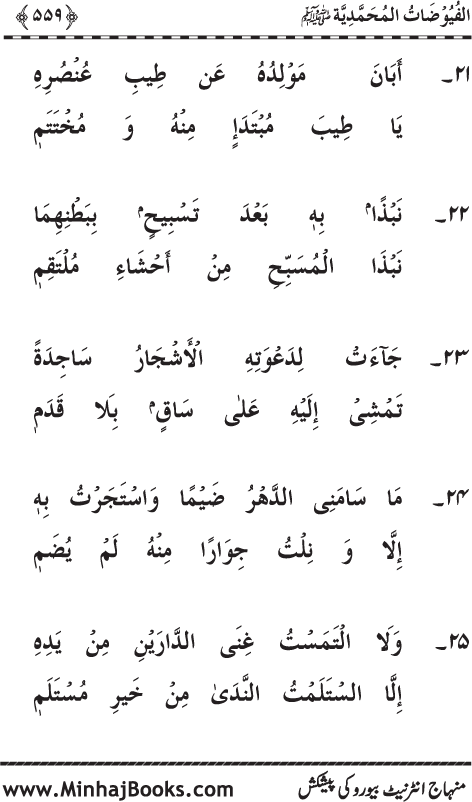 الفُيُوْضَاتُ المُحَمَّدِيَّة ﷺ ﴿۵۵۹﴾
۲۱۔ أَبَانَ مَوْلِدُهُ عَن طِيبِ عُنْصُرِهِ
يَا طِيبَ مُبْتَدَإٍ مِنْهُ وَ مُخْتَتَمِ
۲۲۔ نَبْذًا بِهِ بَعْدَ تَسْبِيحٍ بِبَطْنِهِمَا
نَبْذَا الْمُسَبِّحِ مِنْ أَحْشَاءِ مُلْتَقِمِ
۲۳۔ جَآءَتْ لِدَعْوَتِهِ الْأَشْجَارُ سَاجِدَةً
تَمْشِىْ إِلَيْهِ عَلٰى سَاقٍ بِلَا قَدَمِ
۲۴۔ مَا سَامَنِى الدَّهْرُ ضَيْمًا وَاسْتَجَرْتُ بِهِ
إِلَّا وَ نِلْتُ جِوَارًا مِنْهُ لَمْ يُضَمِ
۲۵۔ وَلَا الْتَمَسْتُ غِنَى الدَّارَيْنِ مِنْ يَدِهِ
إِلَّا اسْتَلَمْتُ النَّدَىٰ مِنْ خَيرِ مُسْتَلَمِ
منہاج انٹرنیٹ بیورو کی پیشکش www.MinhajBooks.com